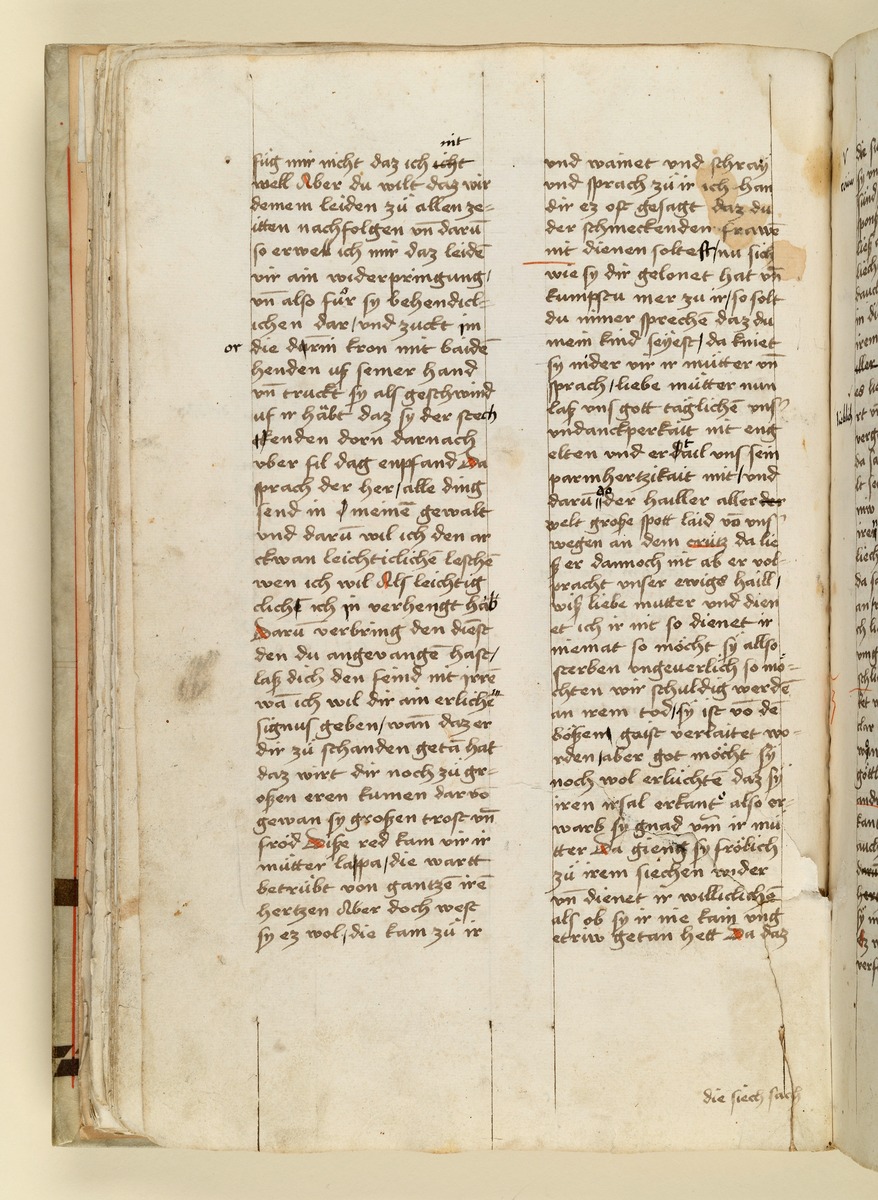 nit
füg mir nicht daz ich icht
well Aber du wilt daz wir
deinem leiden zů allen ze-
itten nachfolgen vn̄ darū
so erwell ich mir daz leidē
vir ain widerpringung/
vn̄ also fůr sy behendicl-
ichen dar/vnd zuckt im
or
die dörnin kron mit baidē
henden uf seiner hand
vn̄ truckt sy als geschwind
uf ir häbt daz sy der stech
kenden dorn darnach
vber fil dag enpfand Da
sprach der her/alle ding
send in meinem gewalt
vnd darū wil ich den ar
ckwan leichticlichē leschē
wen ich wil Als leichtig
clich ich in verhengt hab
Darū verbring den diēst
den du angevangē hast/
laß dich den feind nit irrē
wā ich wil dir ain erlichē
signus geben/wan̄ daz er
dir zů schanden getā hat
daz wirt dir noch zů gr-
oßen eren kumen dar vō
gewan sy großen trost vn̄
fröd Diße red kam vir ir
můtter lappa/die wartt
betrübt von gantzē irē
hertzen Aber doch west
sy ez wol/die kam zů ir
vnd wainet vnd schray
vnd sprach zů ir ich han
dir ez oft gesagt daz du
der schmeckenden frawē
nit dienen soltest/nu sich
wie sy dir gelonet hat vn̄
kumpstu mer zů ir/so solt
du nimer sprechē daz du
mein kind seyest/da kniet
sy nider vir ir můtter vn̄
sprach/liebe můtter nun
laß vns gott täglichē vns
vndanckperkait nit eng
elten vnd er dailt vns sein
parmhertzikait mit/vnd
darū da der hailler aller der
welt große spott laid vō vns
wegen an dem crütz da lie
ß er dannoch nit ab er vol-
pracht vnser ewigs haill/
wiß liebe mutter vnd dien
et ich ir nit so dienet ir
niemat so möcht sy allso
sterben vngeuerlich so mö-
chten wir schuldig werdē
an irem tod/sy ist vō dē
bößem gaist verlaitet wo-
rden/aber got möcht sy
noch wol erlüchtē daz sy
iren irsal erkant also er-
warb sy gnad vm̄ ir mů
tter Da gieng sy frölich
zů irem siechen wider
vn̄ dienet ir williclichē
als ob sy ir nie kain vng
etriw getan hett Da daz
die siech sach